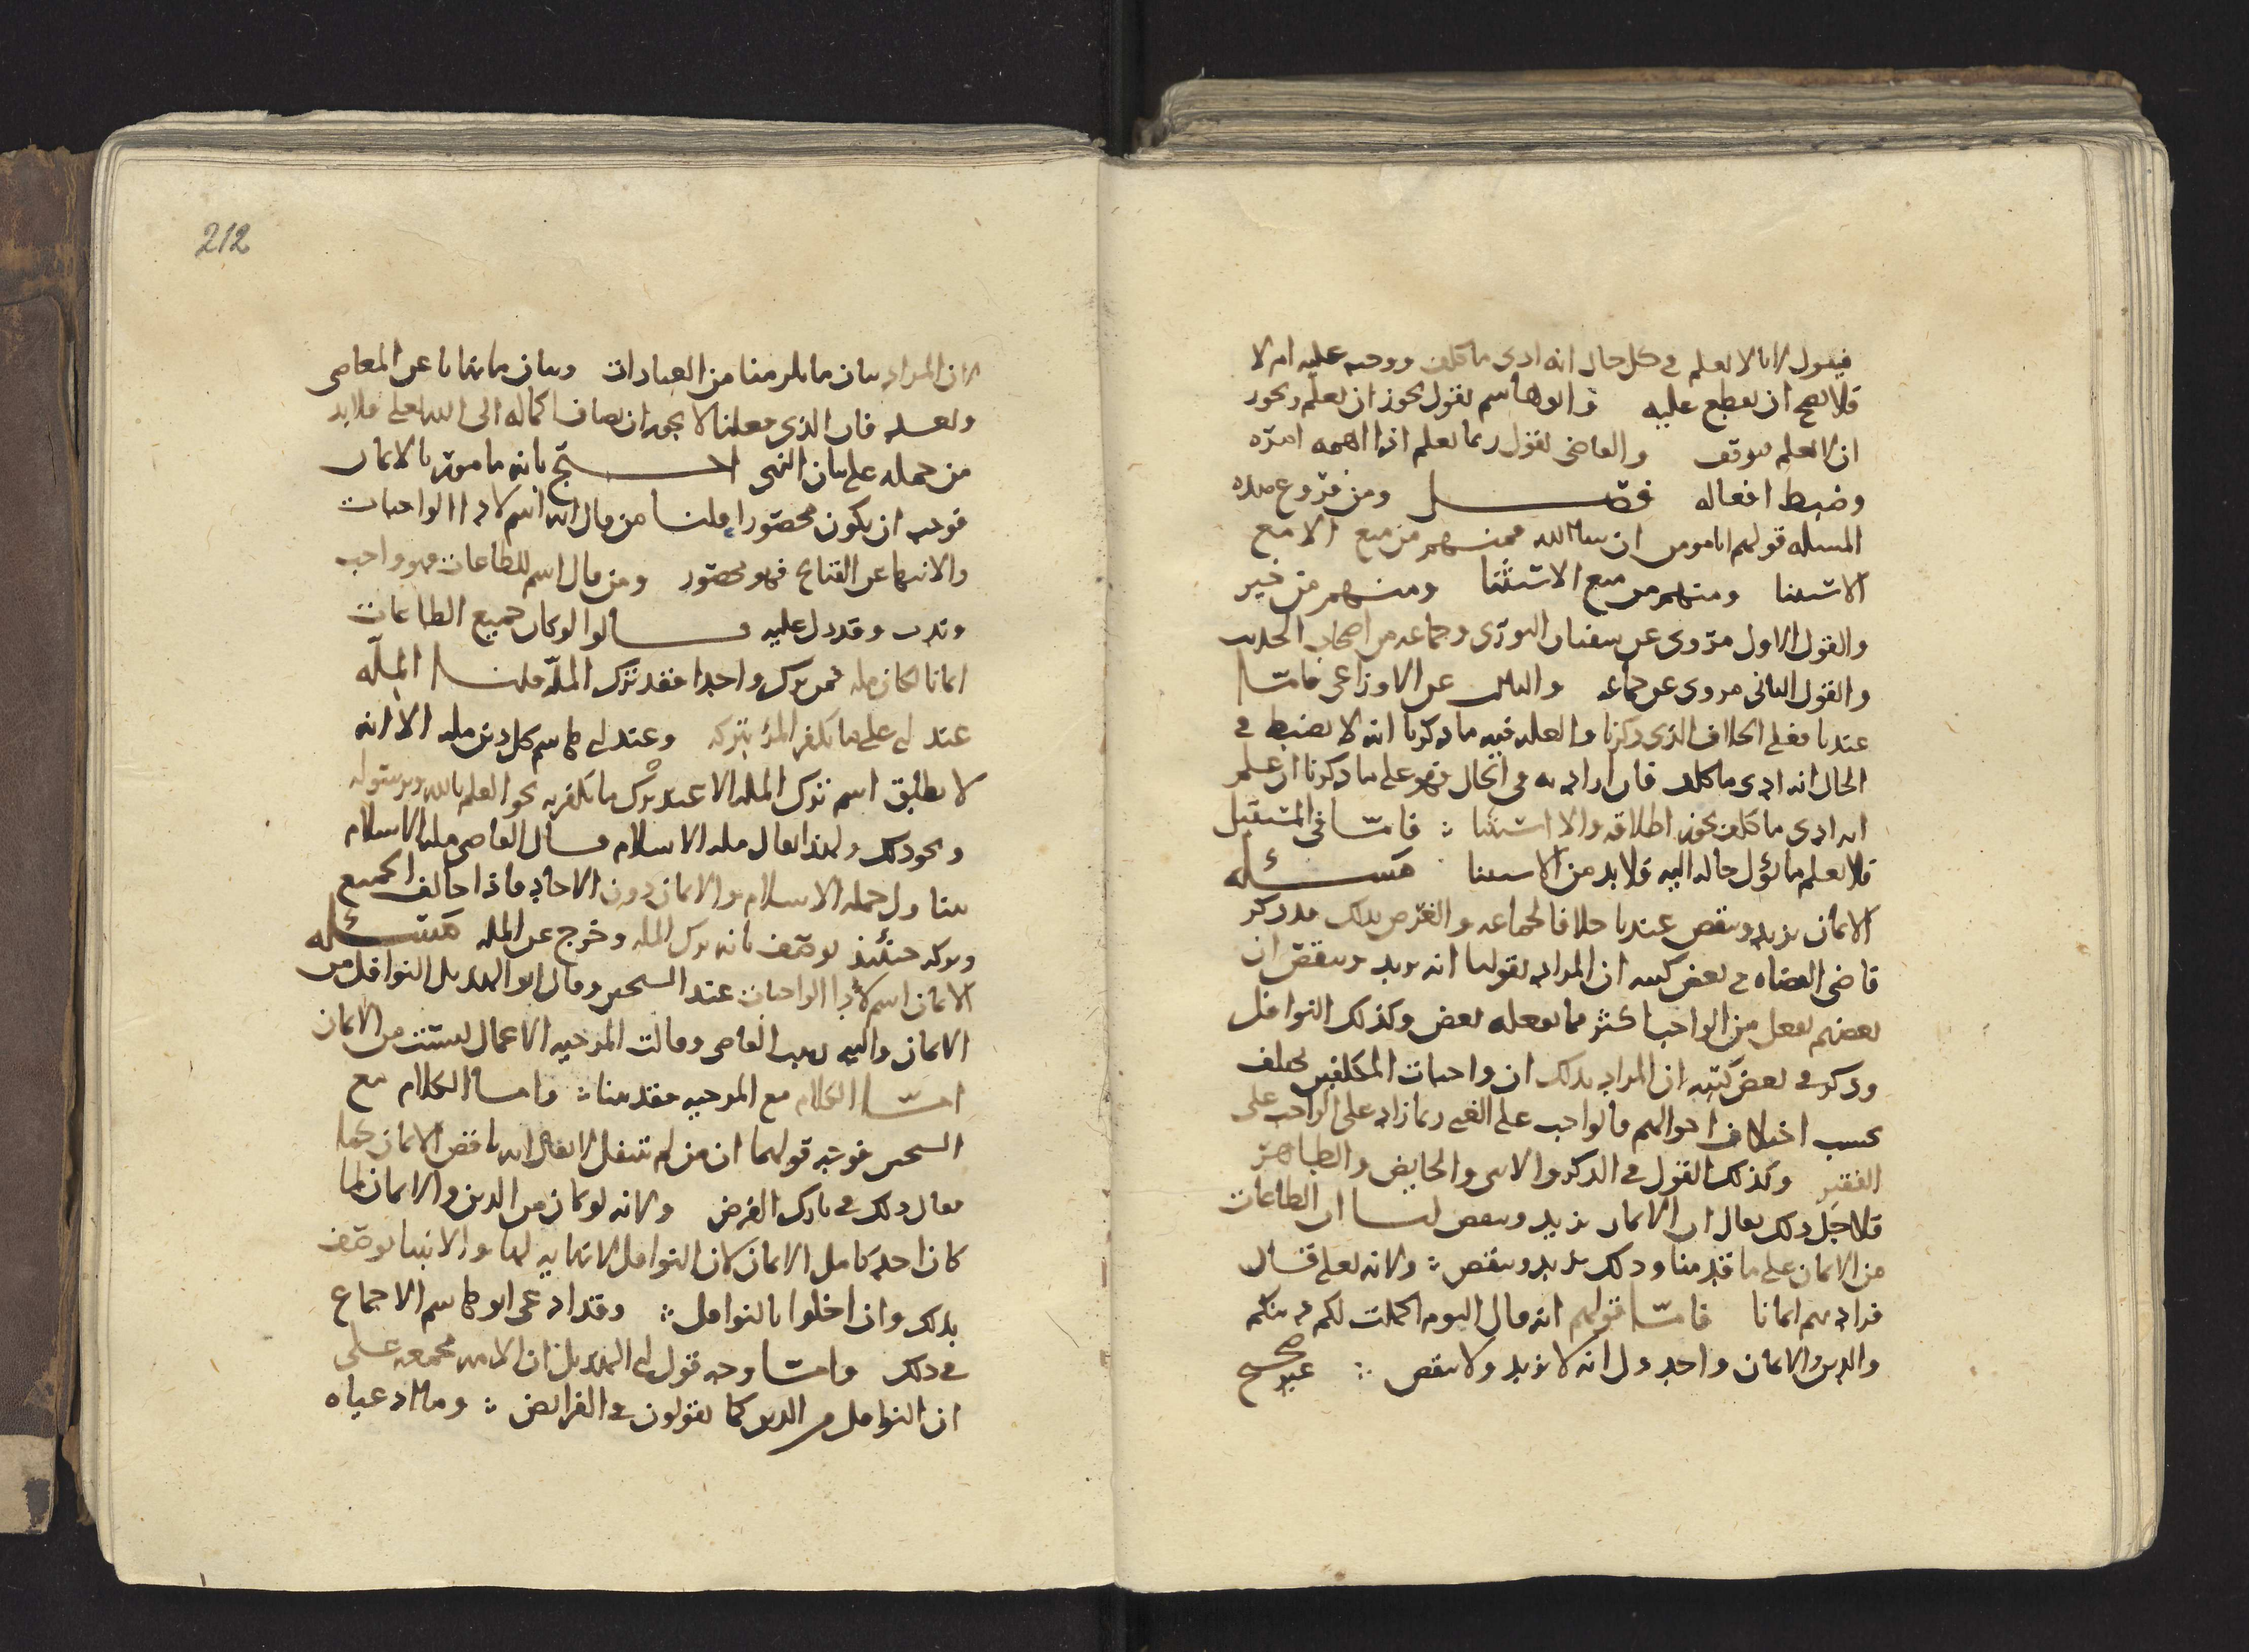 فيقول لانا لا نعلم في كل حال انه ادى ما كلف ووجب عليه ام لا
فلا يصح ان يقطع عليه وابو هاشم يقول يجوز ان نعلم ويجوز
ان لا نعلم فيوقف والقاضي يقول ربما يعلم اذا اهمه امره
وضبط افعاله فصل ومن فروع هذه
المسله قولهم انا مومن ان شا الله فمنهم من منع الا مع
الاستثنا ومنهم من منع الاستثنا ومنهم من خير
والقول الاول مروى عن سفيان الثوري وجماعه من اصحاب الحديث
والقول الثاني مروى عن جماعه والثالث عن الاوزاعي فاما
عندنا فعلى الخلاف الذي ذكرنا والعله فيه ما ذكرنا انه لا يضبط في
الحال انه ادى ما كلف فان اراد به في الحال فهو على ما ذكرنا ان علم
انه ادى ما كلف يجوز اطلاقه والا استثنا فاما في المستقبل
فلا يعلم ما يؤل حاله اليه فلا بد من الاستثنا مسئله
الايمان يزيد وينقص عندنا خلافا لجماعه والغرض بذلك قد ذكر
قاضي القضاه في بعض كتبه ان المراد بقولنا انه يزيد وينقص ان
بعضهم يفعل من الواجب اكثر مما يفعله بعض وكذلك النوافل
وذكر في بعض كتبه ان المراد بذلك ان واجبات المكلفين تختلف
بحسب اختلاف احوالهم فالواجب على الغني ربما زاد على الواجب على
الفقير وكذلك القول في الذكر والانثى والحايض والطاهر
فلاجل ذلك يقال ان الايمان يزيد وينقص لنا ان الطاعات
من الايمان على ما قدمنا وذلك يزيد وينقص ولانه تعلى قال
فزادهم ايمانا فاما قولهم انه قال اليوم اكملت لكم دينكم
والدين والايمان واحد دل انه لا يزيد ولا ينقص غير صحيح
212
لان المراد بيان ما يلزمنا من العبادات وبيان ما نهانا عن المعاصي
وبعد فان الذي فعلنا لا يجوز ان يضاف اكماله الى الله تعلى فلا بد
من حمله على بيان النهي احتج بانه مامور بالايمان
فوجب ان يكون محصورا قلنا من قال انه اسم لادا الواجبات
والانتها عن القبايح فهو محصور ومن قال اسم للطاعات فهو واجب
وندب وقد دل عليه قالوا لو كان جميع الطاعات
ايمانا لكان مله فمن ترك واحدا فقد ترك المله قلنا المله
عند ابي على ما يكفر المرؤ بتركه وعند ابي هاشم كل دين مله الا انه
لا يطلق اسم ترك المله الا عند ترك ما يكفر به نحو العلم بالله وبرسوله
ونحو ذلك ولهذا يقال مله الاسلام قال القاضي مله الاسلام
يتناول جمله الاسلام والايمان دون الاحاد فاذا خالف الجميع
وتركه حينئذ يوصف بانه ترك المله وخرج عن المله مسئله
الايمان اسم لادا الواجبات عند الشيخين وقال ابو الهذيل النوافل من
الايمان واليه ذهب القاضي وقالت المرجيه الاعمال ليست من الايمان
اما الكلام مع المرجيه فقد بينا واما الكلام مع
الشيخين فوجه قولهما ان من لم يتنفل لا يقال انه ناقص الايمان كما
يقال ذلك في تارك الفرض ولانه لو كان من الدين والايمان لما
كان احد كامل الايمان لان النوافل لا نهايه لها والانبيا يوصف
بذلك وان اخلوا بالنوافل وقد ادعى ابو هاشم الاجماع
في ذلك واما وجه قول ابي الهذيل ان الامه مجمعه على
ان النوافل من الدين كما يقولون في الفرايض وما ادعياه